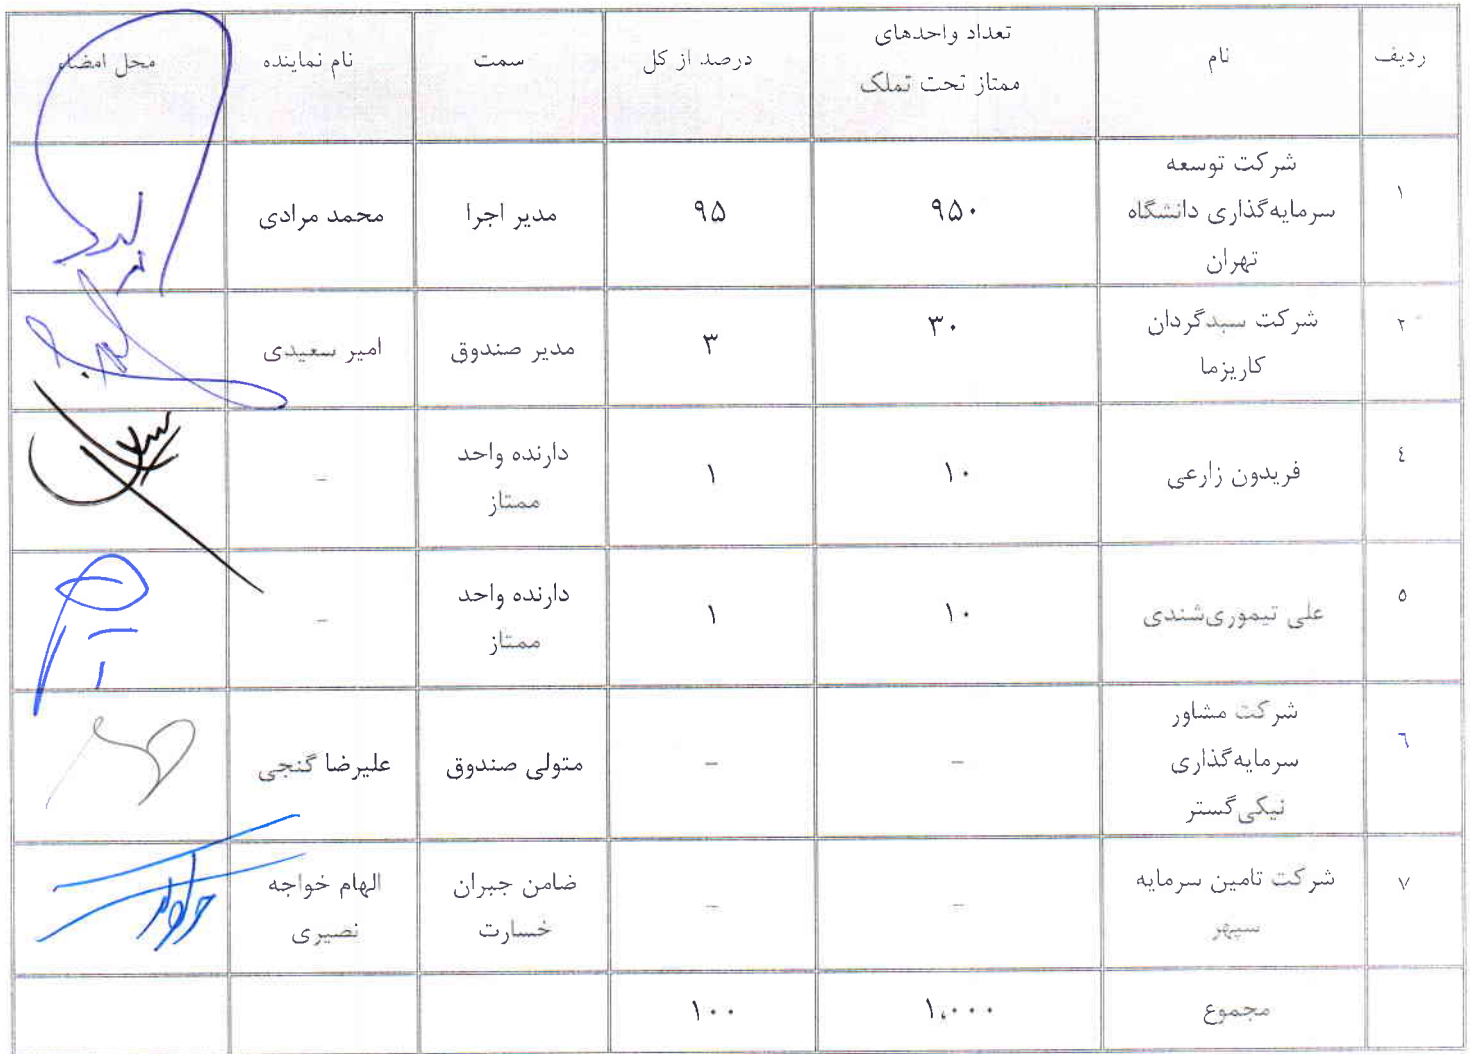 ردیف
نام
تعداد واحدهای
ممتاز تحت تملک
درصد از کل
سمت
نام نماینده
محل امضاء
۱
شرکت توسعه
سرمایه‌گذاری دانشگاه
تهران
۹۵۰
۹۵
مدیر اجرا
محمد مرادی
۲
شرکت سبدگردان
کاریزما
۳۰
۳
مدیر صندوق
امیر سعیدی
٤
فریدون زارعی
۱۰
۱
دارنده واحد
ممتاز
-
٥
علی تیموری‌شندی
۱۰
۱
دارنده واحد
ممتاز
-
٦
شرکت مشاور
سرمایه‌گذاری
نیکی‌گستر
-
-
متولی صندوق
علیرضا گنجی
۷
شرکت تامین سرمایه
سپهر
-
-
ضامن جبران
خسارت
الهام خواجه
نصیری
مجموع
۱،۰۰۰
۱۰۰